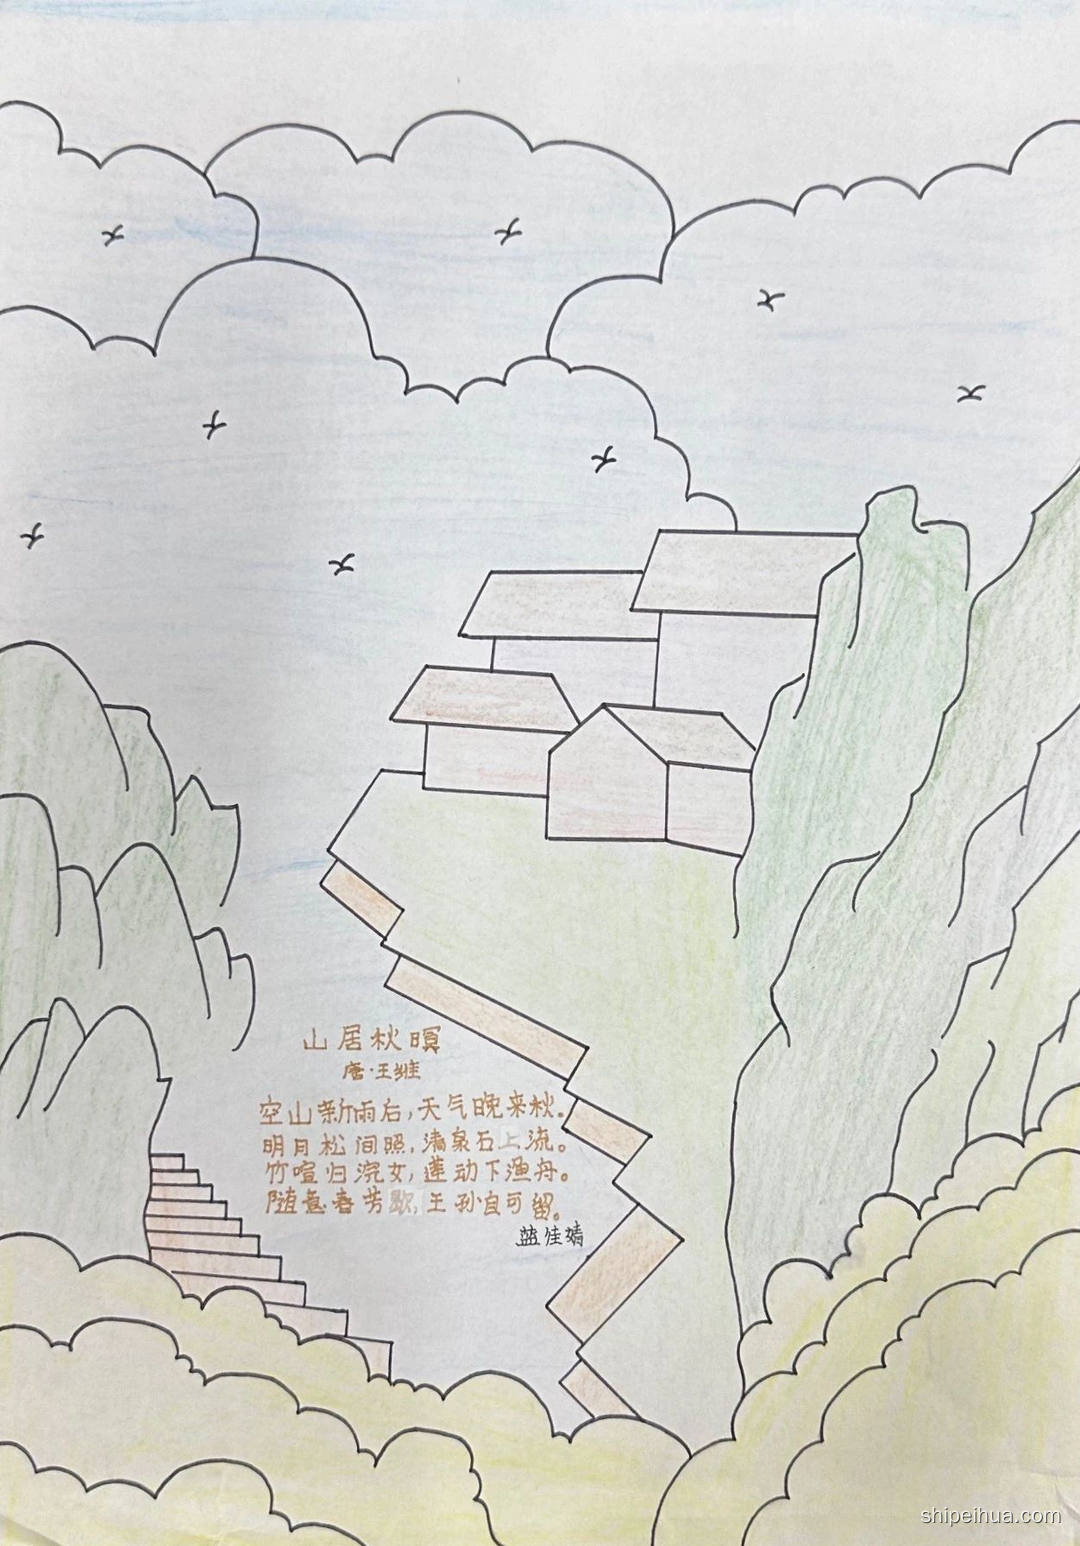 山居秋暝
唐·王维
空山新雨后,天气晚来秋。
明月松间照,清泉石上流。
竹喧归浣女,莲动下渔舟。
随意春芳歇,王孙自可留。
蓝佳婧
shipeihua.com